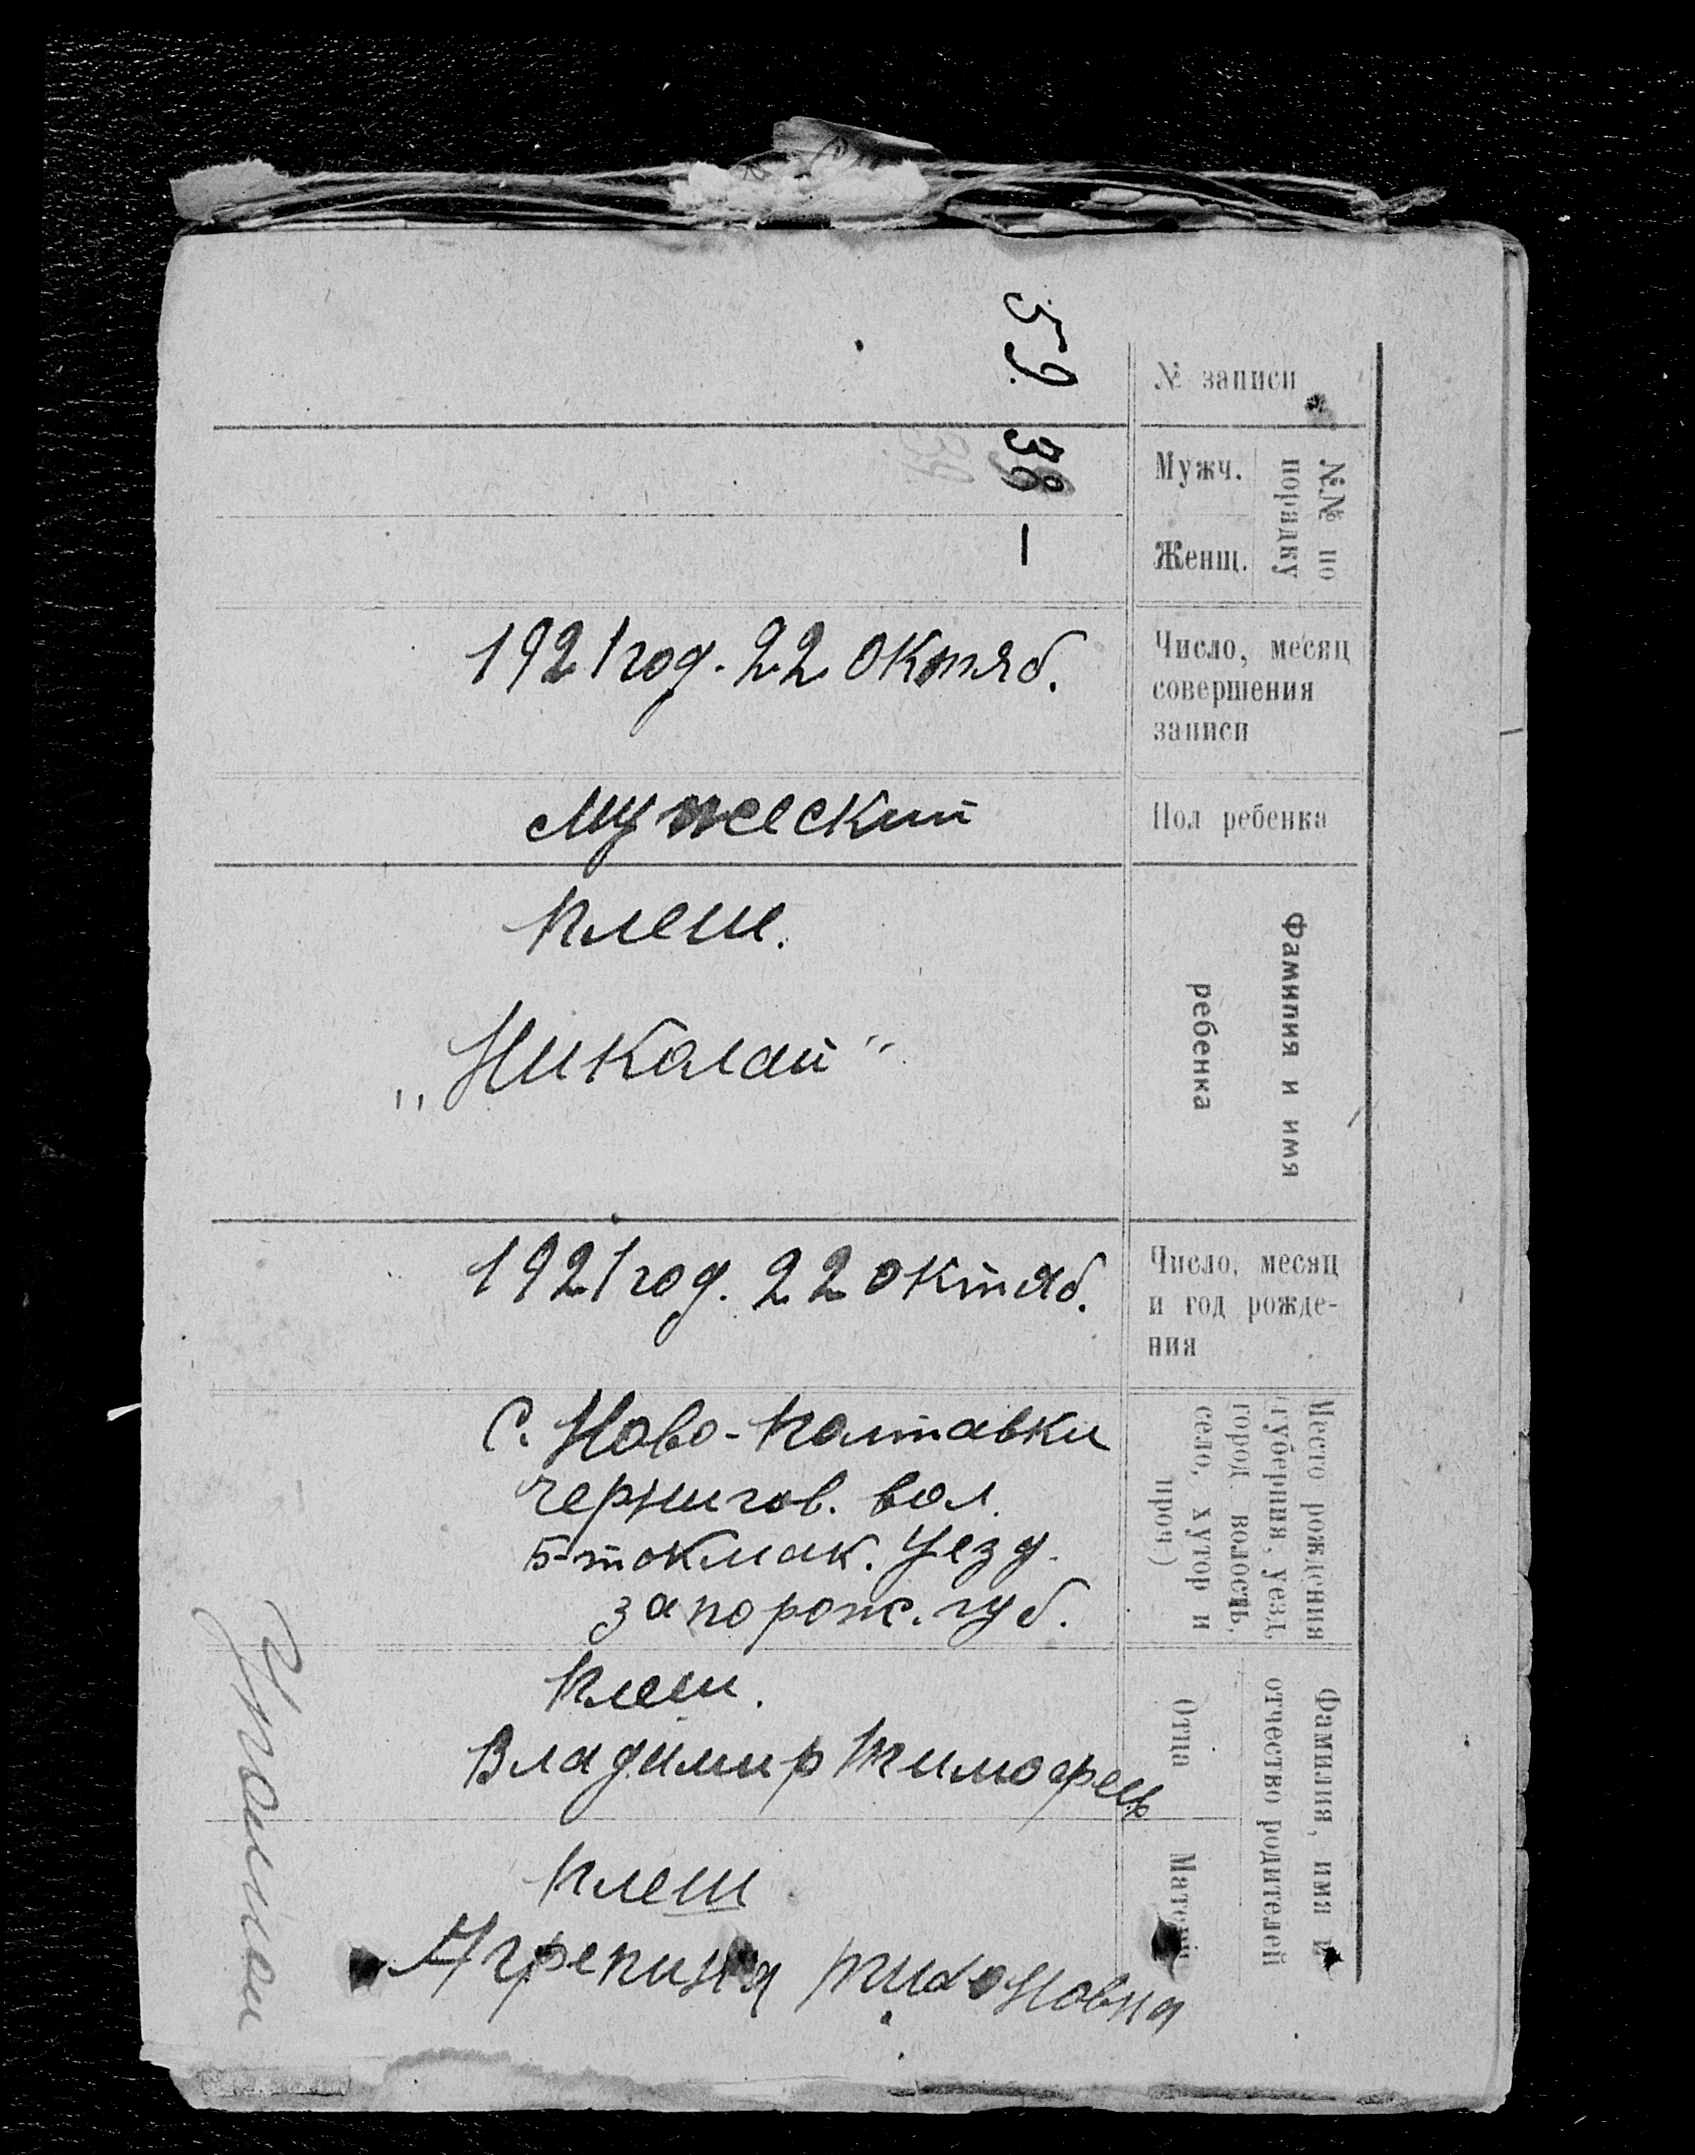 59.
38
39.
—
№ записи
Мужч.
Женщ.
№№ по
порядку
1921 год. 22 октяб.
Число, месяц
совершения
записи
мужеский
Пол ребенка
Клеш.
„Николай“
Фамилия и имя
ребенка
1921 год. 22 октяб.
Число, месяц
и год рожде-
ния
С. Ново-Полтавки
Чернигов. вол.
Б-токмак. Уезд.
запорож. губ.
Место рождения
(губерния, уезд,
город, волость,
село, хутор и
проч.)
Клеш.
Владимир Тимофеев
Клеш
Агрепина Тихоновна
Фамилия, имя и
отчество родителей
Отца
Матери